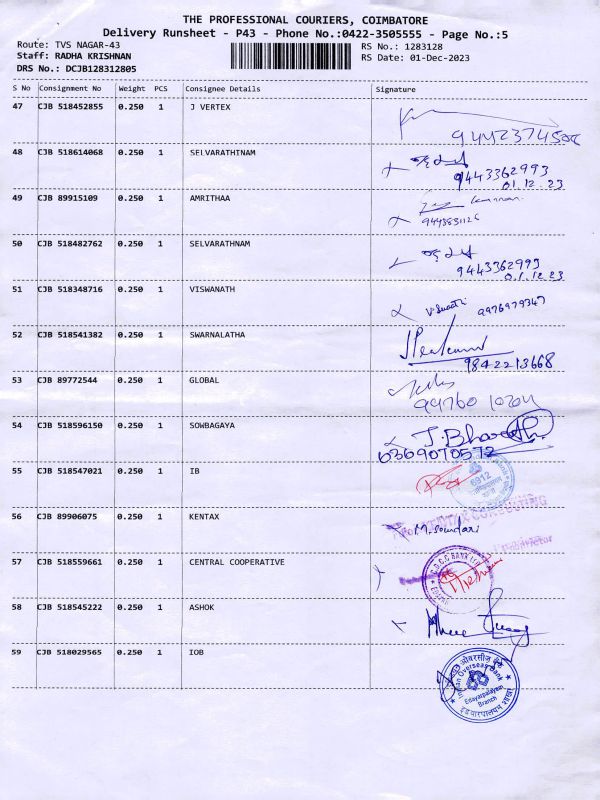 THE PROFESSIONAL COURIERS, COIMBATORE
Delivery Runsheet - P43 - Phone No.:0422-3505555 - Page No.:5
Route: TVS NAGAR-43
RS No.: 1283128
Staff: RADHA KRISHNAN
RS Date: 01-Dec-2023
DRS No.: DCJB128312805
S No Consignment No Weight PCS Consignee Details Signature
47 CJB 518452855 0.250 1 J VERTEX
48 CJB 518614068 0.250 1 SELVARATHINAM
9443362993
01.12.23
49 CJB 89915109 0.250 1 AMRITHAA
50 CJB 518482762 0.250 1 SELVARATHNAM
9443362993
01.12.23
51 CJB 518348716 0.250 1 VISWANATH
9976979347
52 CJB 518541382 0.250 1 SWARNALATHA
9842213668
53 CJB 89772544 0.250 1 GLOBAL
54 CJB 518596150 0.250 1 SOWBAGAYA
J. Bharath
6369070572
55 CJB 518547021 0.250 1 IB
6912
56 CJB 89906075 0.250 1 KENTAX
M. Soundari
Proprietor
57 CJB 518559661 0.250 1 CENTRAL COOPERATIVE
58 CJB 518545222 0.250 1 ASHOK
59 CJB 518029565 0.250 1 IOB
Indian Overseas Bank
Edayarpalayam
Branch